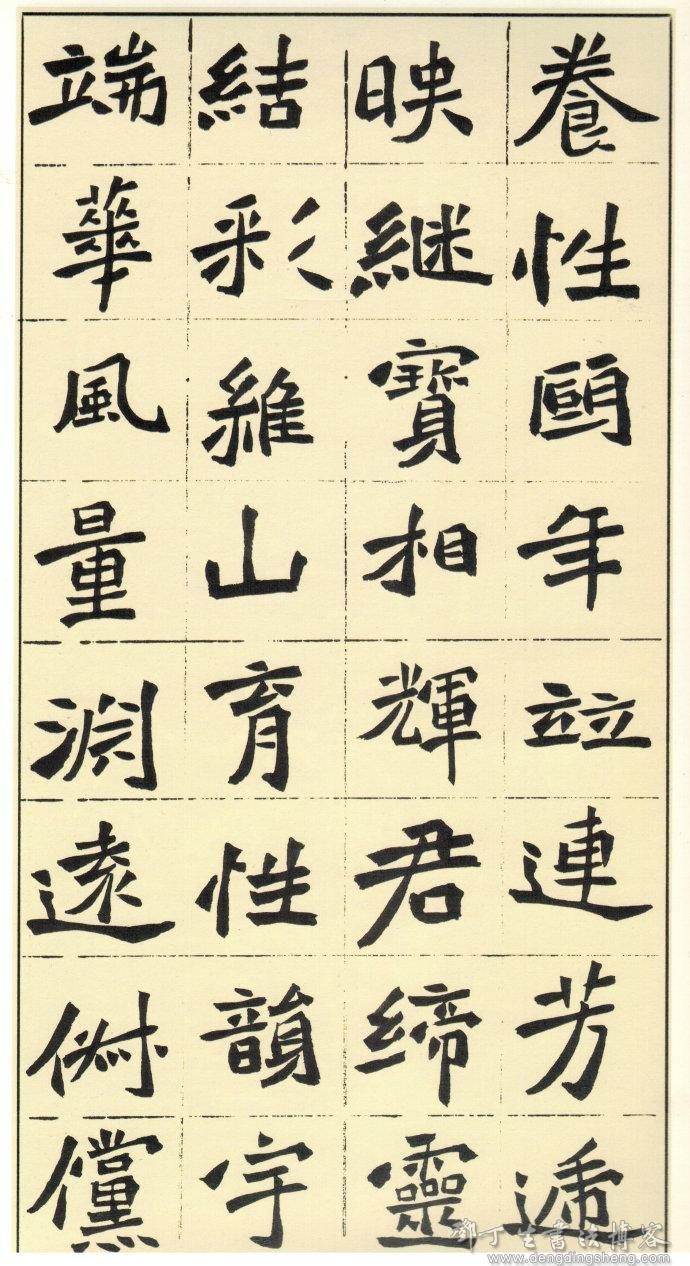 養性頤年竝連芳遞
映継寶相輝君締靈
結彩維山育性韻宇
端華風量淵遠俶儻
鄧丁生書法博客
www.dengdingsheng.com